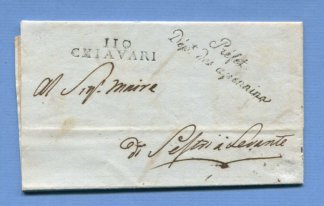 110
CHIAVARI
Préfet
Dépt. des Apennins
Al Sigr. Maire
di Sestri à Levante